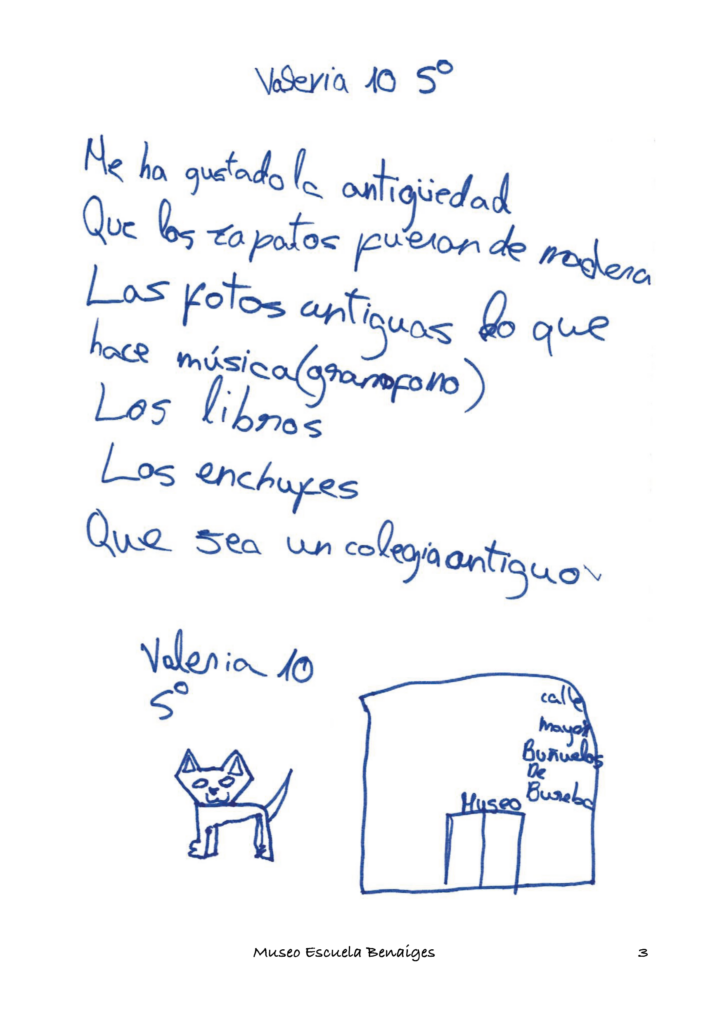 Valeria 10 5º
Me ha gustado la antigüedad
Que los zapatos fueran de madera
Las fotos antiguas lo que
hace música (gramofono)
Los libros
Los enchufes
Que sea un colegio antiguo
Valeria 10
5º
calle
mayor
Buñuelos
De
Bureba
Museo
Museo Escuela Benaiges
3